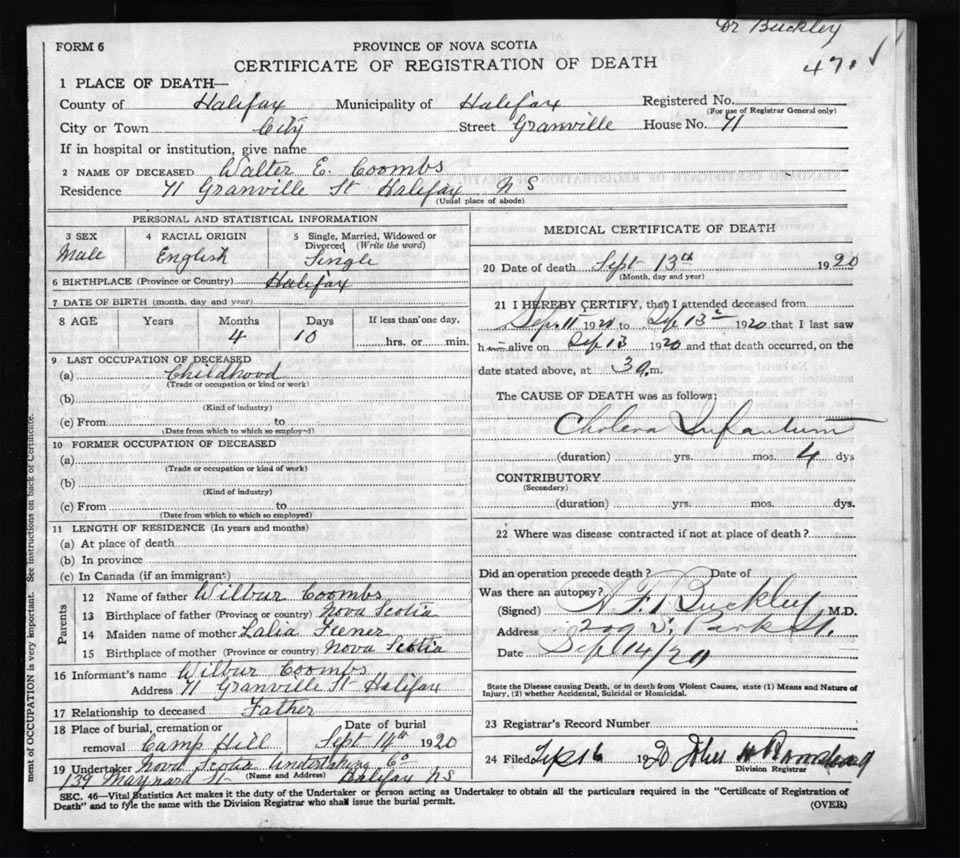 Dr Buckley
FORM 6
PROVINCE OF NOVA SCOTIA
CERTIFICATE OF REGISTRATION OF DEATH
470
1 PLACE OF DEATH—
County of Halifax Municipality of Halifax Registered No.
(For use of Registrar General only)
City or Town City Street Granville House No. 71
If in hospital or institution, give name
2 NAME OF DECEASED Walter E. Coombs
Residence 71 Granville St Halifax N S
(Usual place of abode)
PERSONAL AND STATISTICAL INFORMATION
3 SEX
Male
4 RACIAL ORIGIN
English
5 Single, Married, Widowed or Divorced (Write the word)
Single
6 BIRTHPLACE (Province or Country) Halifax
7 DATE OF BIRTH (month, day and year)
8 AGE Years Months Days If less than one day,
4 10 hrs. or min.
9 LAST OCCUPATION OF DECEASED
(a) Childhood
(Trade or occupation or kind or work)
(b)
(Kind of industry)
(c) From to
(Date from which to which so employed)
10 FORMER OCCUPATION OF DECEASED
(a)
(Trade or occupation or kind of work)
(b)
(Kind of industry)
(c) From to
(Date from which to which so employed)
11 LENGTH OF RESIDENCE (In years and months)
(a) At place of death
(b) In province
(c) In Canada (if an immigrant)
Parents
12 Name of father Wilbur Coombs
13 Birthplace of father (Province or country) Nova Scotia
14 Maiden name of mother Lalia
15 Birthplace of mother (Province or country) Nova Scotia
16 Informant's name Wilbur Coombs
Address 71 Granville St Halifax
17 Relationship to deceased Father
18 Place of burial, cremation or removal Camp Hill
Date of burial
Sept 14th 1920
19 Undertaker Nova Scotia Undertaking Co
(Name and Address)
139 Maynard St Halifax NS
MEDICAL CERTIFICATE OF DEATH
20 Date of death Sept 13th 1920
(Month, day and year)
21 I HEREBY CERTIFY, that I attended deceased from
Sep. 11 1920 to Sep 13 1920 that I last saw
him alive on Sep 13 1920 and that death occurred, on the
date stated above, at 3 a.m.
The CAUSE OF DEATH was as follows:
Cholera Infantum
(duration) yrs. mos. 4 dys
CONTRIBUTORY
(Secondary)
(duration) yrs. mos. dys.
22 Where was disease contracted if not at place of death?
Did an operation precede death? Date of
Was there an autopsy?
(Signed) Buckley M.D.
Address 209 S. Park St.
Date Sep 14/20
State the Disease causing Death, or in death from Violent Causes, state (1) Means and Nature of
Injury, (2) whether Accidental, Suicidal or Homicidal.
23 Registrar's Record Number
24 Filed Sept 16 1920 John
Division Registrar
SEC. 46—Vital Statistics Act makes it the duty of the Undertaker or person acting as Undertaker to obtain all the particulars required in the "Certificate of Registration of
Death" and to fyle the same with the Division Registrar who shall issue the burial permit.
(OVER)
ment of OCCUPATION is very important. See instructions on back of Certificate.